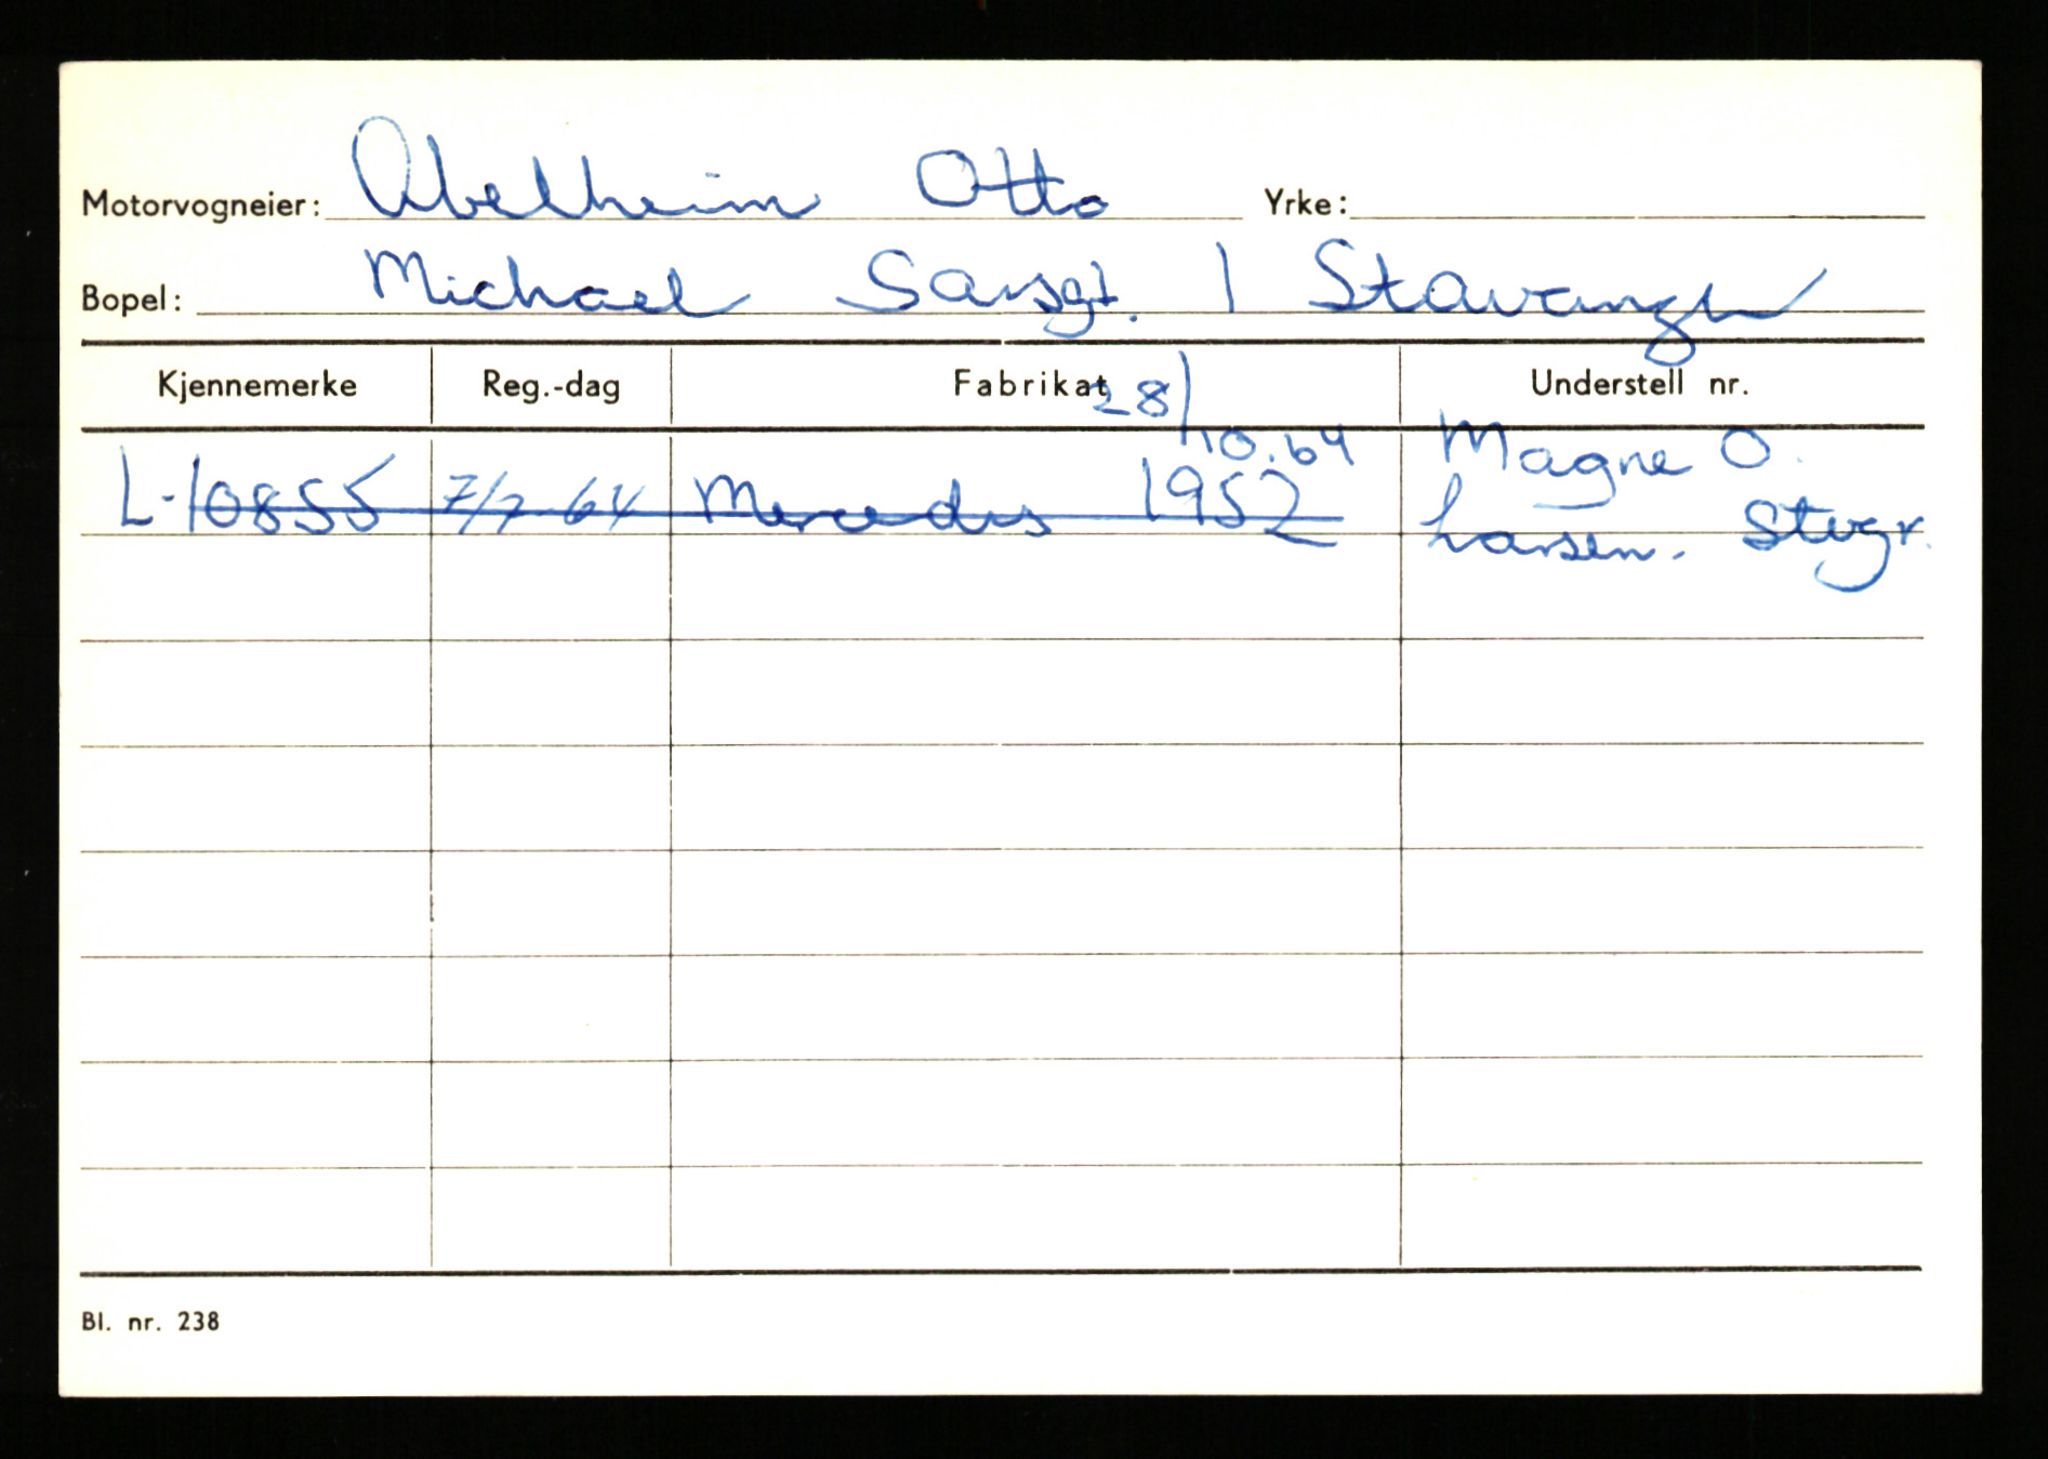 Motorvogneier: Abelheim Otto Yrke:
Bopel: Michael Sarsgt. 1 Stavanger
Kjennemerke Reg.-dag Fabrikat Understell nr.
28/10.64 Magne O.
L-10855 7/7 64 Mercedes 1952 Larsen. Stvgr.
Bl. nr. 238